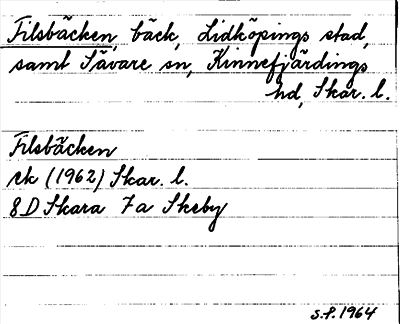 Filsbäcken, bäck, Lidköpings stad,
samt Sävare sn, Kinnefjärdings
hd, Skar. l.
Filsbäcken
ek (1962) Skar. l.
8D Skara 7a Skeby
S.P. 1964